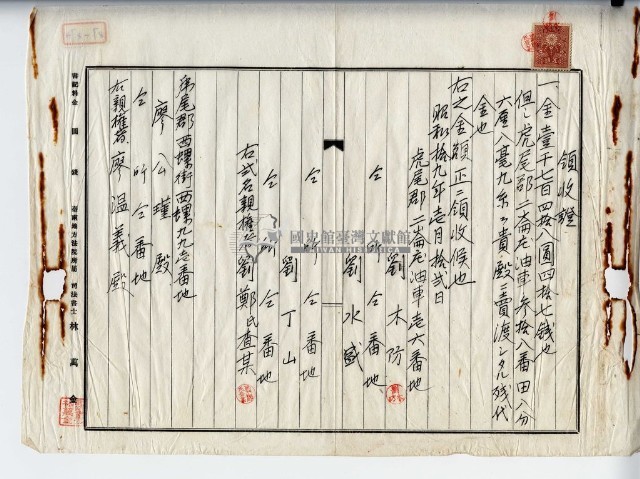 領收證
一、金壹千七百四拾八圓四拾七錢也
但シ虎尾郡二崙庄油車參拾八番田八分
六厘八毫九糸ヲ貴殿ニ賣渡シタル殘代
金也
右之金額正ニ領收候也
昭和拾九年壱月拾弍日
虎尾郡二崙庄油車壱六番地
劉木防
仝所仝番地
劉水盛
仝所仝番地
劉丁山
仝所仝番地
右弍名親權者劉鄭氏查某
虎尾郡西螺街西螺九九壱番地
廖公瑾殿
仝所仝番地
右親權者廖温義殿
書記料金 圓 錢 臺南地方法院所屬 司法書士 林萬金
國史館臺灣文獻館
TAIWAN HISTORICA